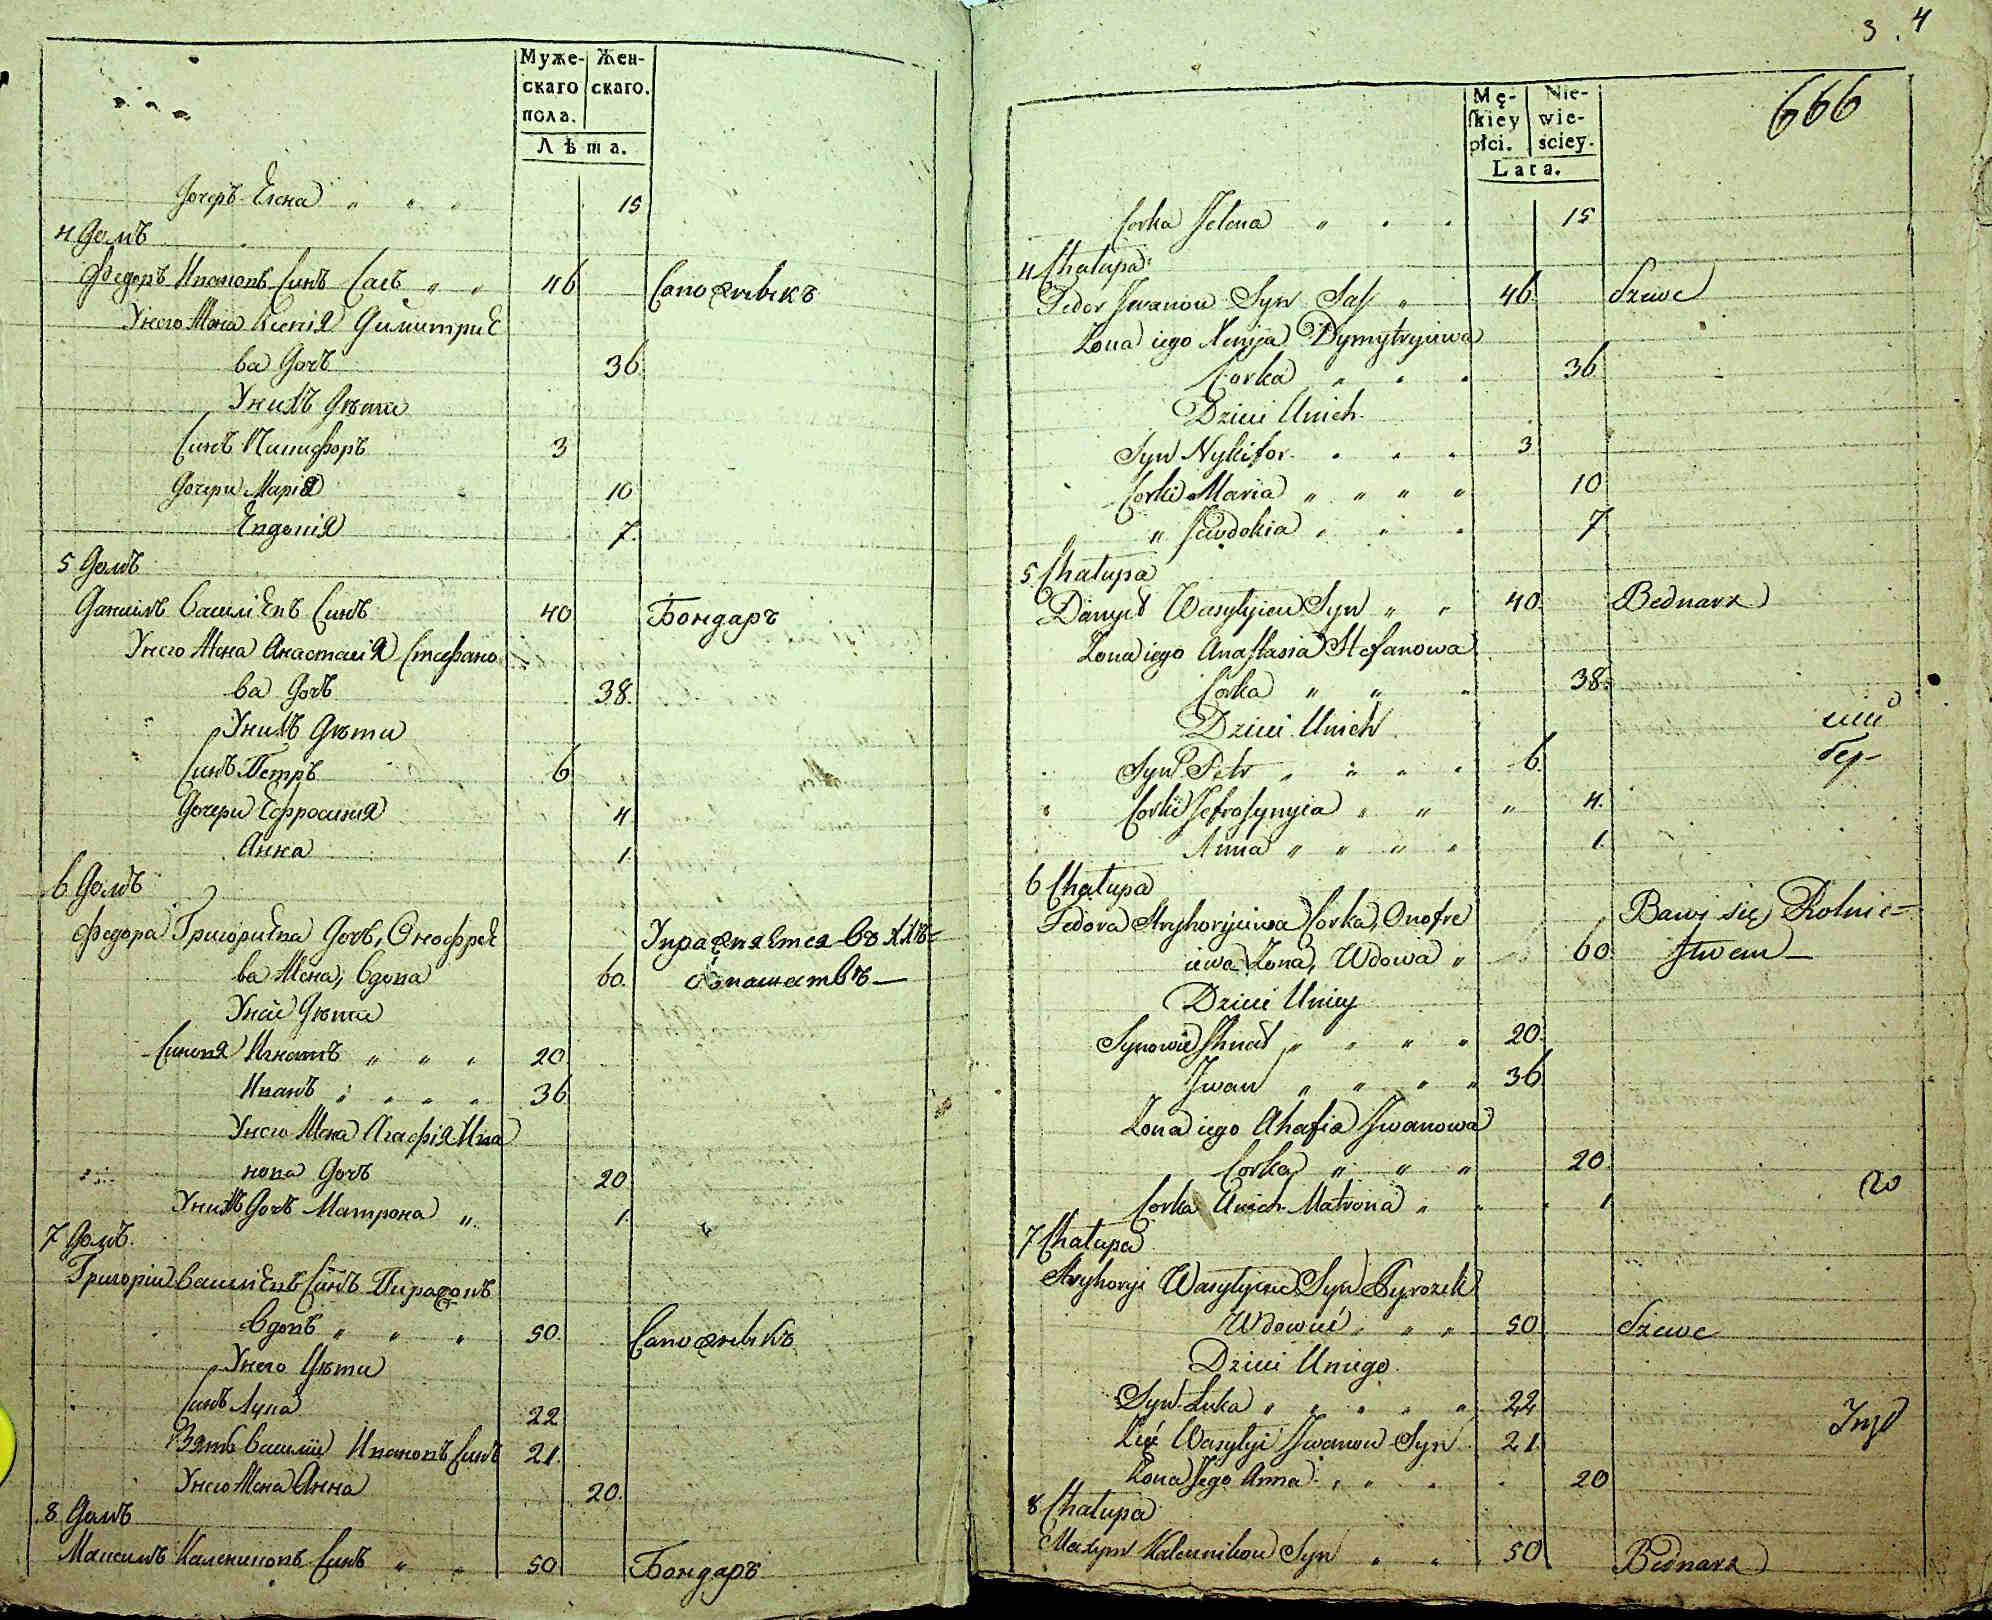 Муже- Жен-
скаго скаго.
пола.
Лѣта.
Дочерь Елена " " " 15
4 Домъ
Федоръ Ивановъ Синъ Сасъ " " 46 Сапожникъ
Унего Жена Ксенія Димитріе
ва Дочь 36
Унихъ Дѣти
Синъ Никифоръ 3
Дочери Марія 10
Евдокія 7.
5 Домъ
Даниилъ Василіевъ Синъ 40 Бондаръ
Унего Жена Анастасія Стефано
ва Дочь 38.
Унихъ Дѣти
Синъ Петръ 6
Дочери Ефросинія 4
Анна 1.
6 Домъ
Федора Григоріева Дочь, Онофріе Упражняется въ хлѣ-
ва Жена, Вдова 60. бопашествѣ —
Унеи Дѣти
Синовя Игнатъ " " " 20
Иванъ " " " " 36
Унего Жена Агафія Ива
нова Дочь 20
Унихъ Дочь Матрона " 1.
7 Домъ.
Григорій Василіевъ Синъ Пирожокъ
Вдовъ " " " 50. Сапожникъ
Унего Дѣти
Синъ Лука 22
Зять Василій Ивановъ Синъ 21.
Унего Жена Анна 20.
8 Домъ
Максимъ Калениковъ Синъ " " 50 Бондаръ
3. 4
666
Mę- Nie-
skiey wie-
płci. sciey.
Lata.
Corka Jelena " " " 15
4 Chałupa
Fedor Jwanow Syn Sas " 46. Szewc
Zona iego Xenija Dymytryiewa
Corka " " " 36
Dzieci Unich
Syn Nykifor " " " 3
Corki Maria " " " " 10
" Jewdokia " " " 7
5. Chałupa
Danyło Wasylyiew Syn " " 40. Bednarz
Zona iego Anastasia Stefanowa
Corka " " " 38.
Dzieci Unich
Syn Petr " " " " 6.
Corki Jefrosynyia " " " 4.
Anna " " " " 1.
6 Chałupa
Fedora Hryhoryiewa Corka, Onofre Bawi się Rolnic-
iewa Zona, Wdowa " 60. stwem —
Dzieci Uniey
Synowie Ihnat " " " " 20.
Jwan " " " " 36.
Zona iego Ahafia Jwanowa
Corka " " " 20.
Corka Unich Matrona " " " 1
7 Chałupa
Hryhoryi Wasylyiew Syn Pyrozek
Wdowiec " " " 50 Szewc
Dzieci Uniego
Syn Łuka " " " " " 22
Zięć Wasylyi Jwanow Syn 21.
Zona Jego Anna " " " " 20
8 Chałupa
Maxym Kalennikow Syn " " 50 Bednarz